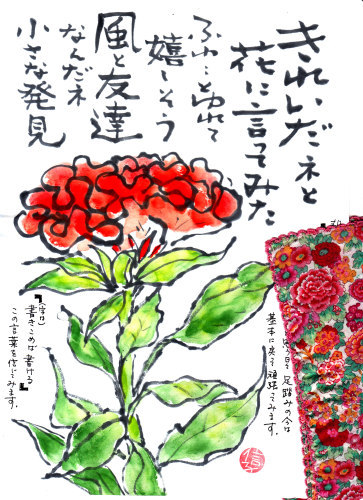 きれいだネと
花に言ってみた
ふわ…とゆれて
嬉しそう
風と友達
なんだネ
小さな発見
足踏みの今は
基本に戻って頑張ってみます。
書きこめば書ける』
この言葉を信じてみます。